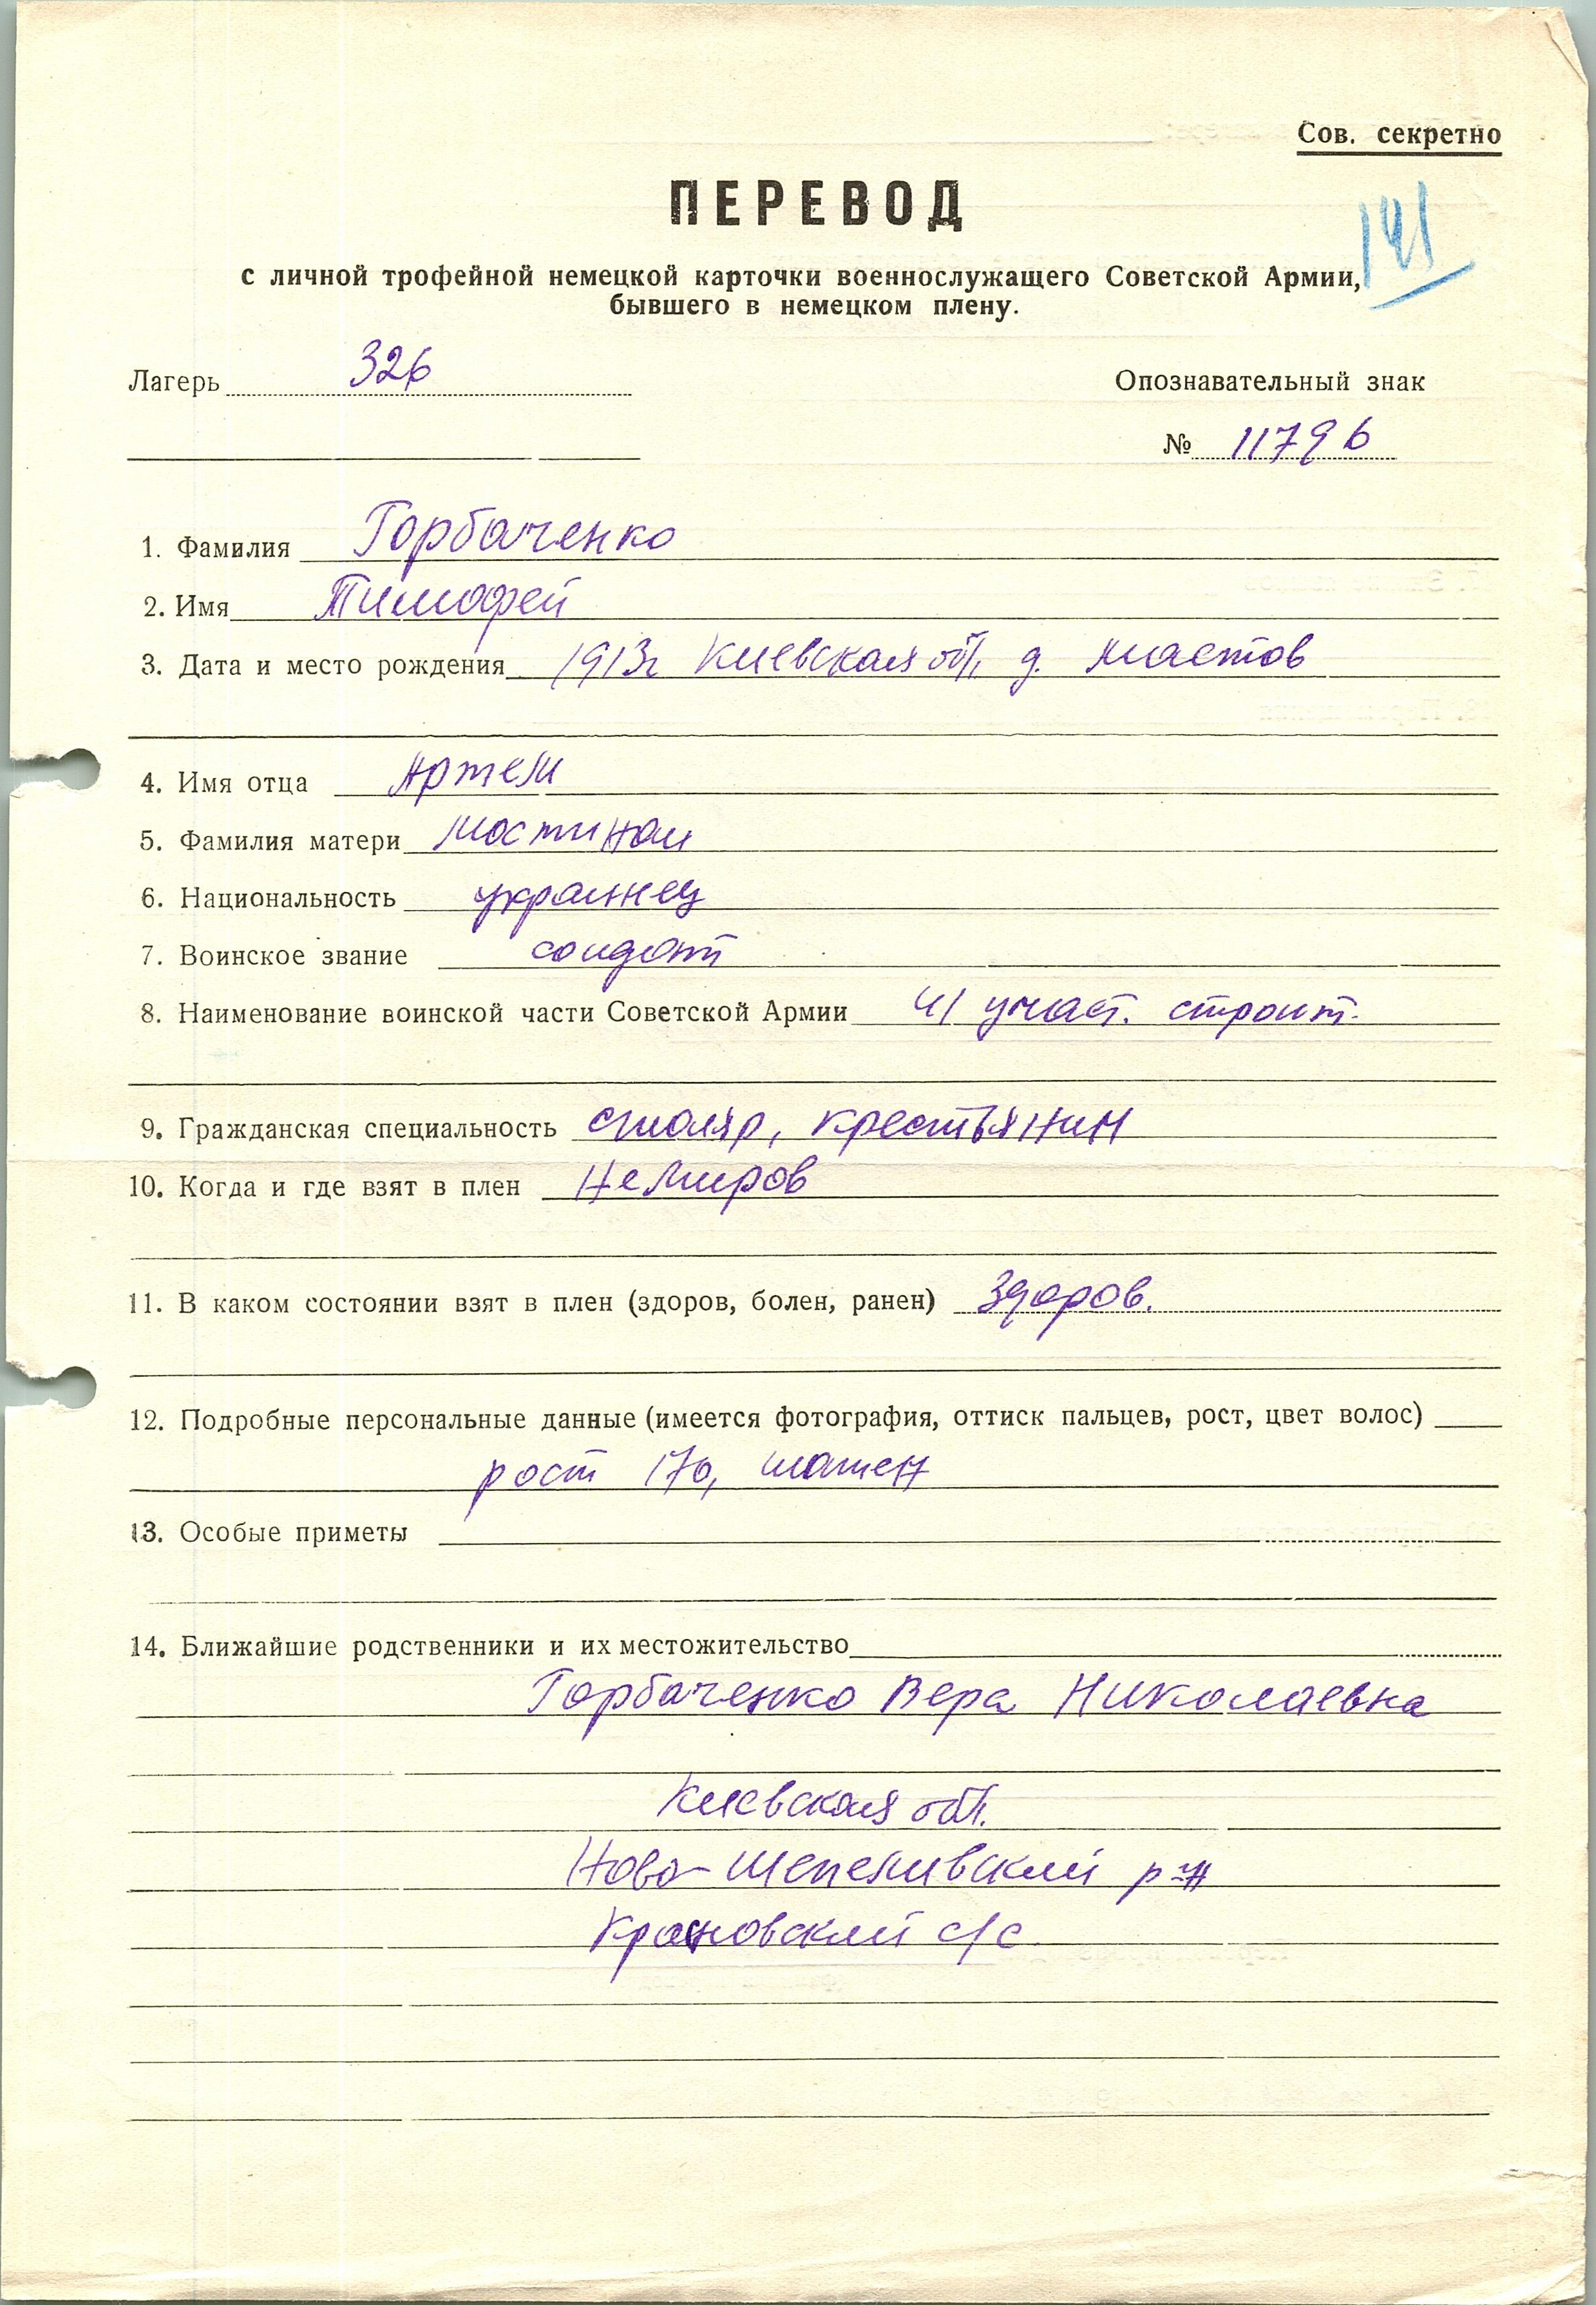 Сов. секретно
ПЕРЕВОД
141
с личной трофейной немецкой карточки военнослужащего Советской Армии,
бывшего в немецком плену.
Лагерь 326
Опознавательный знак
№ 11796
1. Фамилия Горбаченко
2. Имя Тимофей
3. Дата и место рождения 1913г Киевская обл. д.
4. Имя отца Артем
5. Фамилия матери
6. Национальность украинец
7. Воинское звание солдат
8. Наименование воинской части Советской Армии 41 участ. строит.
9. Гражданская специальность столяр, крестьянин
10. Когда и где взят в плен Немиров
11. В каком состоянии взят в плен (здоров, болен, ранен) Здоров.
12. Подробные персональные данные (имеется фотография, оттиск пальцев, рост, цвет волос)
рост 170, шатен
13. Особые приметы
14. Ближайшие родственники и их местожительство
Горбаченко Вера Николаевна
Киевская обл.
Ново-Шепеливский р-н
с/с